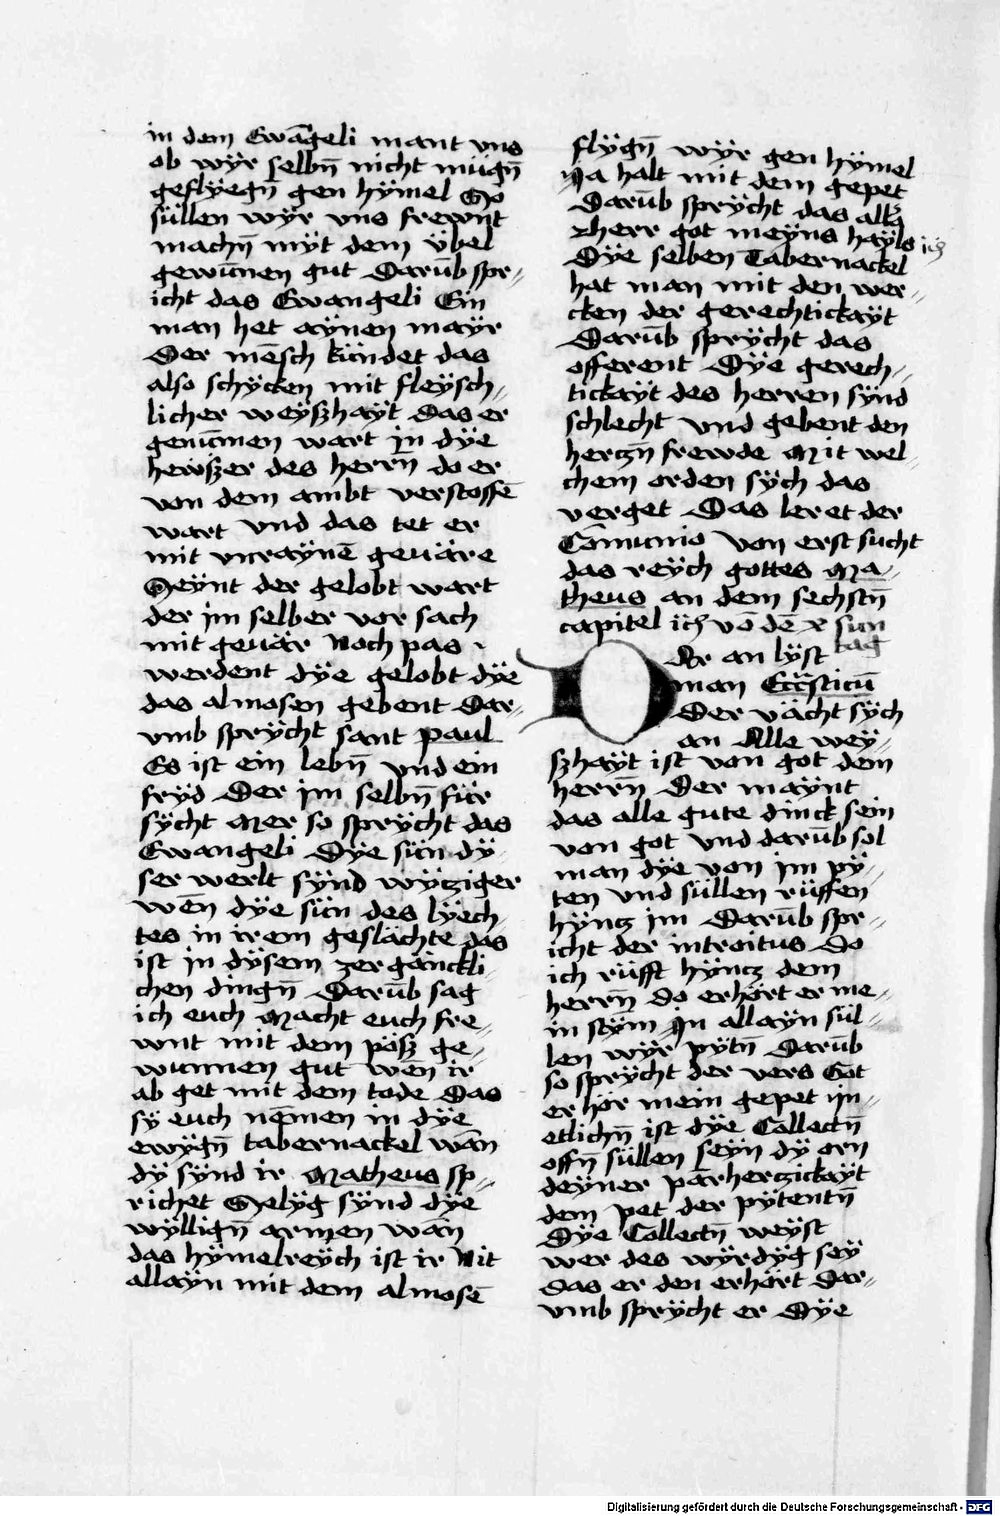 in dem Ewāgeli mant vns
ob wÿr selbn̄ nicht mügn̄
geflÿegn̄ gen hÿmel So
süllen wÿr vns frewnt
machn̄ mÿt dem ÿbel
gewūnen gut Darūb spr//
icht das Ewangeli Ein
man het aÿnen maÿr
Der mēsch kündet das
also schÿcken mit fleÿsch//
licher weÿszhaÿt Das er
genūmen wart in dÿe
hewszer des herrn̄ do er
von dem ambt verstossē
wart vnd das tet er
mit vnraÿnē geuäre
Seÿnt der gelobt wart
der im selber vor sach
mit geuär Noch pas
werdent dÿe gelobt dÿe
das almosen gebent Dar//
vmb sprÿcht sant Paul
Es ist ein lebn̄ vnd ein
frÿd Der im selbn̄ für
sÿcht Mer so sprÿcht das
Ewangeli Dÿe sün dÿ//
ser werlt sÿnd wÿtziger
wēn dÿe sün des lÿech//
tes in irem geslächte das
ist in dÿsem zergänckli//
chen dingn̄ Darūb sag
ich euch Macht euch fre//
wnt mit dem pösz ge//
wunnen gut wēn ir
ab get mit dem tode Das
sÿ euch nēmen in dÿe
ewÿgn̄ tabernackel wān
dÿ sÿnd ir Matheus sp//
richet Selÿg sÿnd dÿe
wÿllign̄ armen wān
das hÿmelreÿch ist ir Nit
allaÿn mit dem almosē
flÿgn̄ wÿr gen hÿmel
Ja halt mit dem gepet
Darūb sprÿcht das alla
zherr got meÿns haÿls
Dÿe selben Tabernackel
hat man mit den wer//
cken der gerechtickaÿt
Darūb sprÿcht das
offerent Dÿe gerech//
tickaÿt des herren sÿnd
schlecht vnd gebent den
hertzn̄ frewde Mit wel//
chem orden sÿch das
verget Das leret der
Cōmunio Von erst sucht
das reÿch gottes Ma//
theus an dem sechstn̄
capitel ich vō dē x sun
tag
DEr an lÿst
man Eccsticū
Der vächt sÿch
an Alle weÿ//
szhaÿt ist von got dem
herrn̄ Der maÿnt
das alle gute dinck sein
von got vnd darūb sol
man dÿe von im pÿ//
ten vnd süllen rüffen
hÿntz im Darūb spr//
icht der introitus Do
ich rüfft hÿntz dem
herrn̄ do erhört er me//
in stÿm In allaÿn sül//
len wÿr pÿtn̄ Darūb
so sprÿcht der vers Got
erhör mein gepet im//
etlichn̄ ist dÿe Collectn̄
offn̄ süllen seÿn dÿ orn
deÿner parhertzickaÿt
dem pet der pÿtentn̄
Dÿe Collectn̄ weÿst
wer des wÿrdÿg seÿ
das er den erhört Dar//
vmb sprÿcht er Dÿe
Digitalisierung gefördert durch die Deutsche Forschungsgemeinschaft - DFG